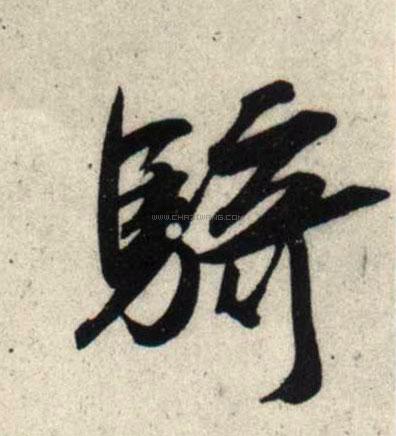 騎
WWW.CHAZIWANG.COM